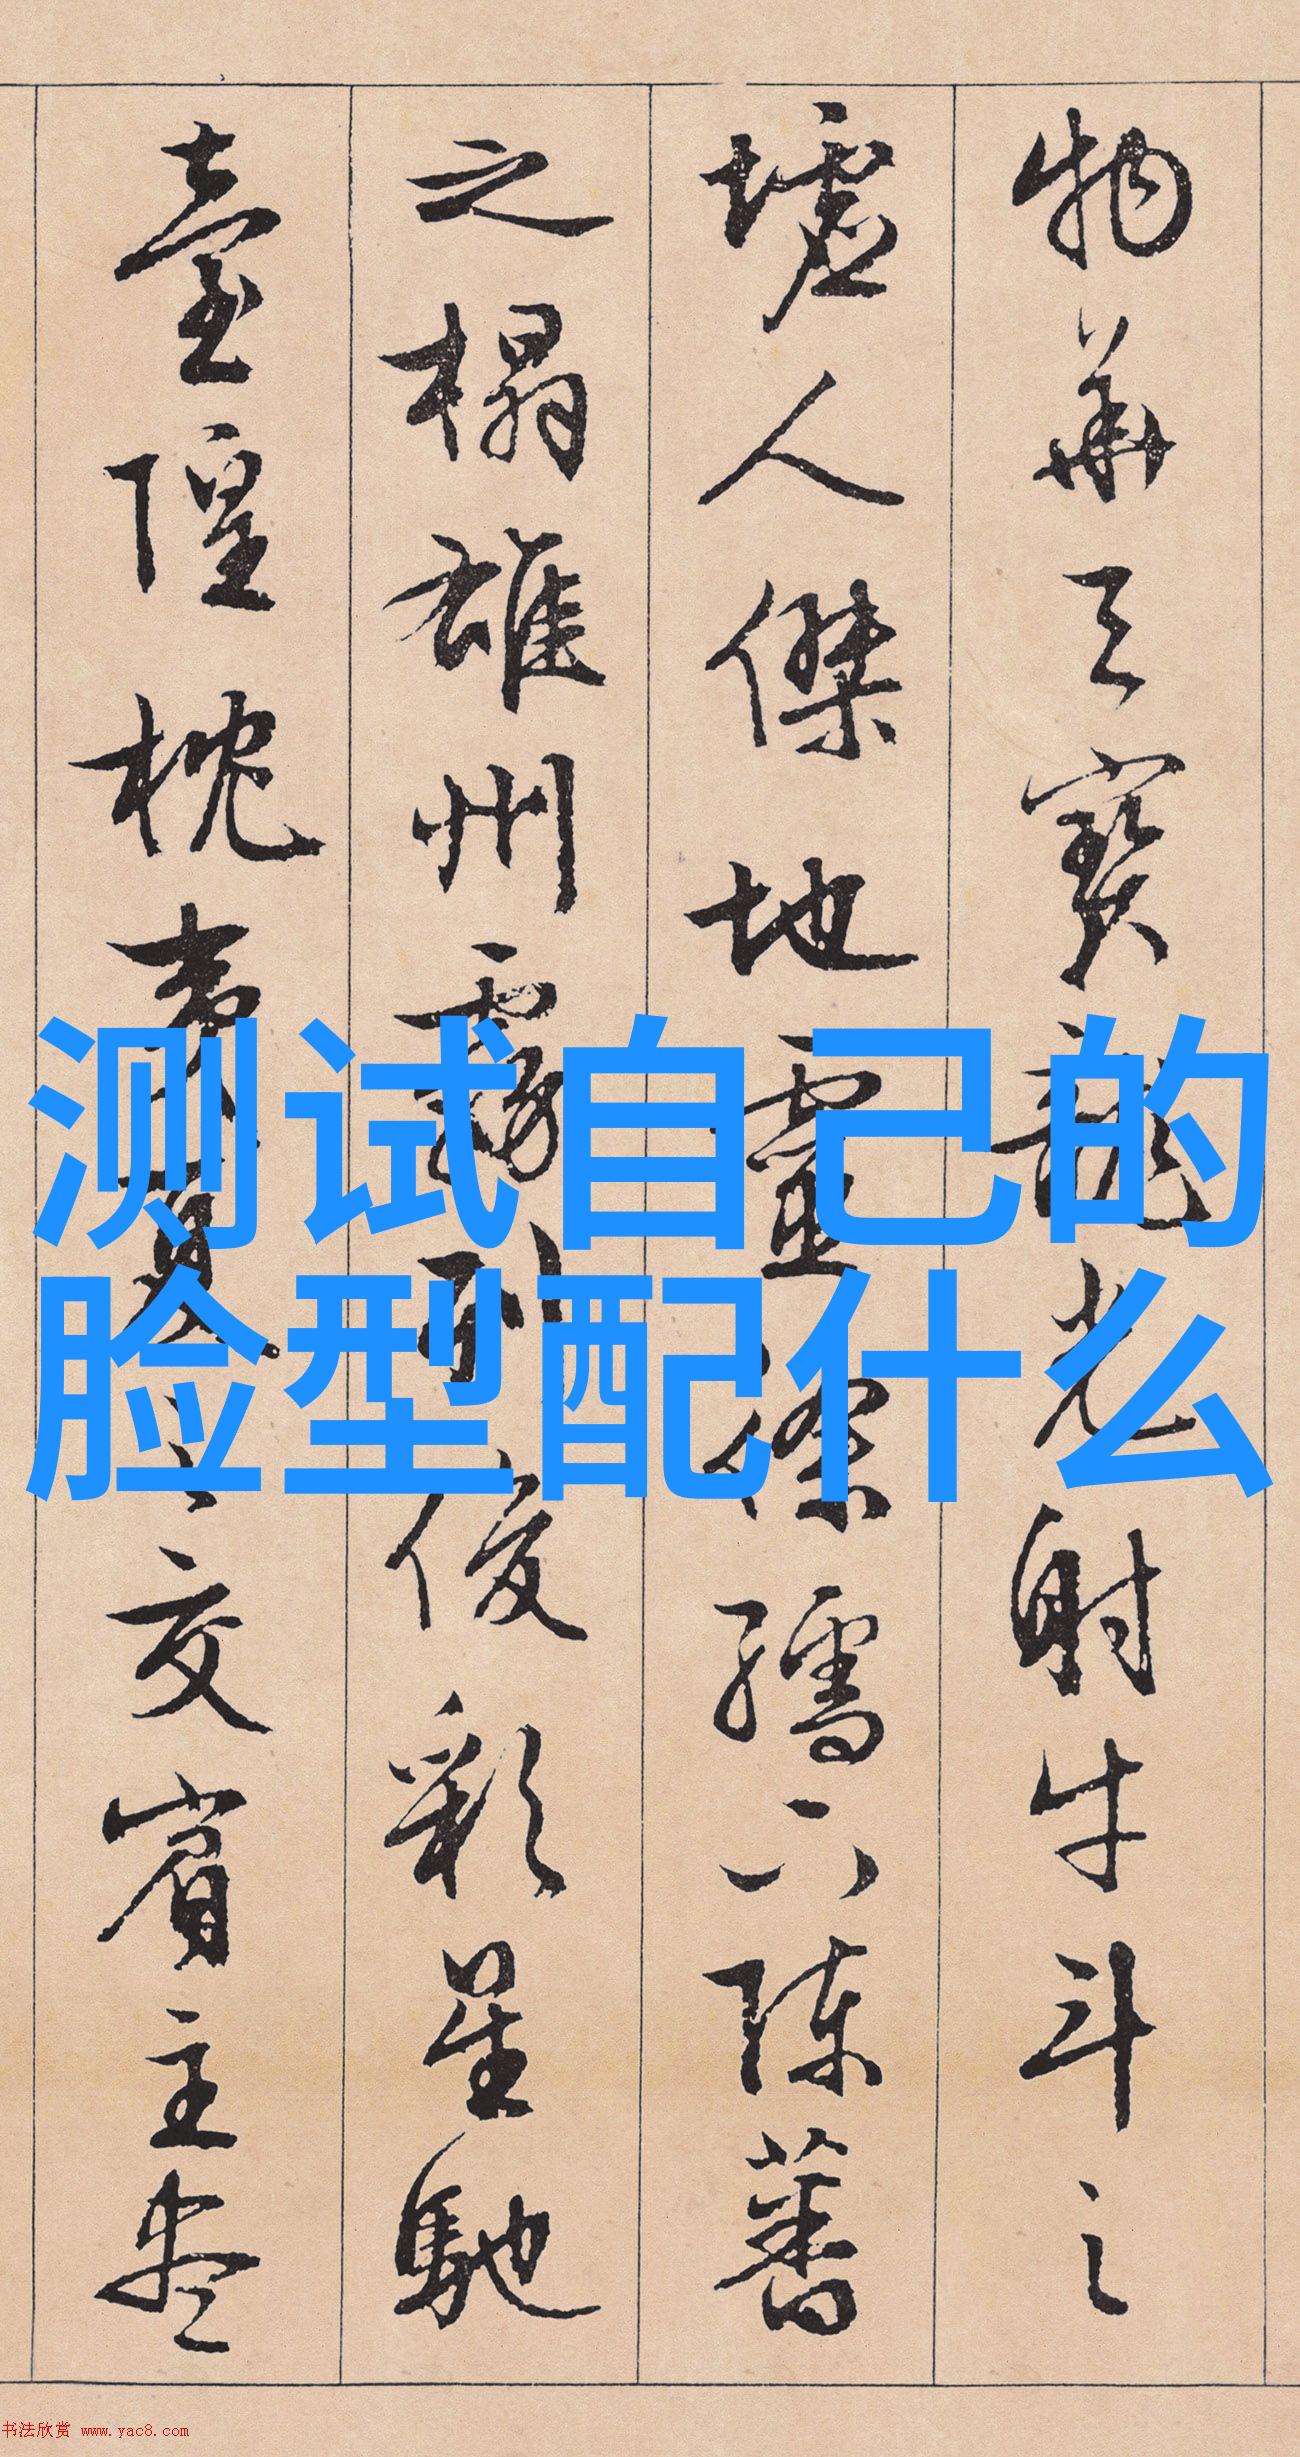 物華天寶龍光射牛斗之
墟人傑地靈徐孺下陳蕃
之榻雄州霧列俊彩星馳
臺隍枕夷夏之交賓主盡
测试自己的
脸型配什么
书法欣赏 www.yac8.com